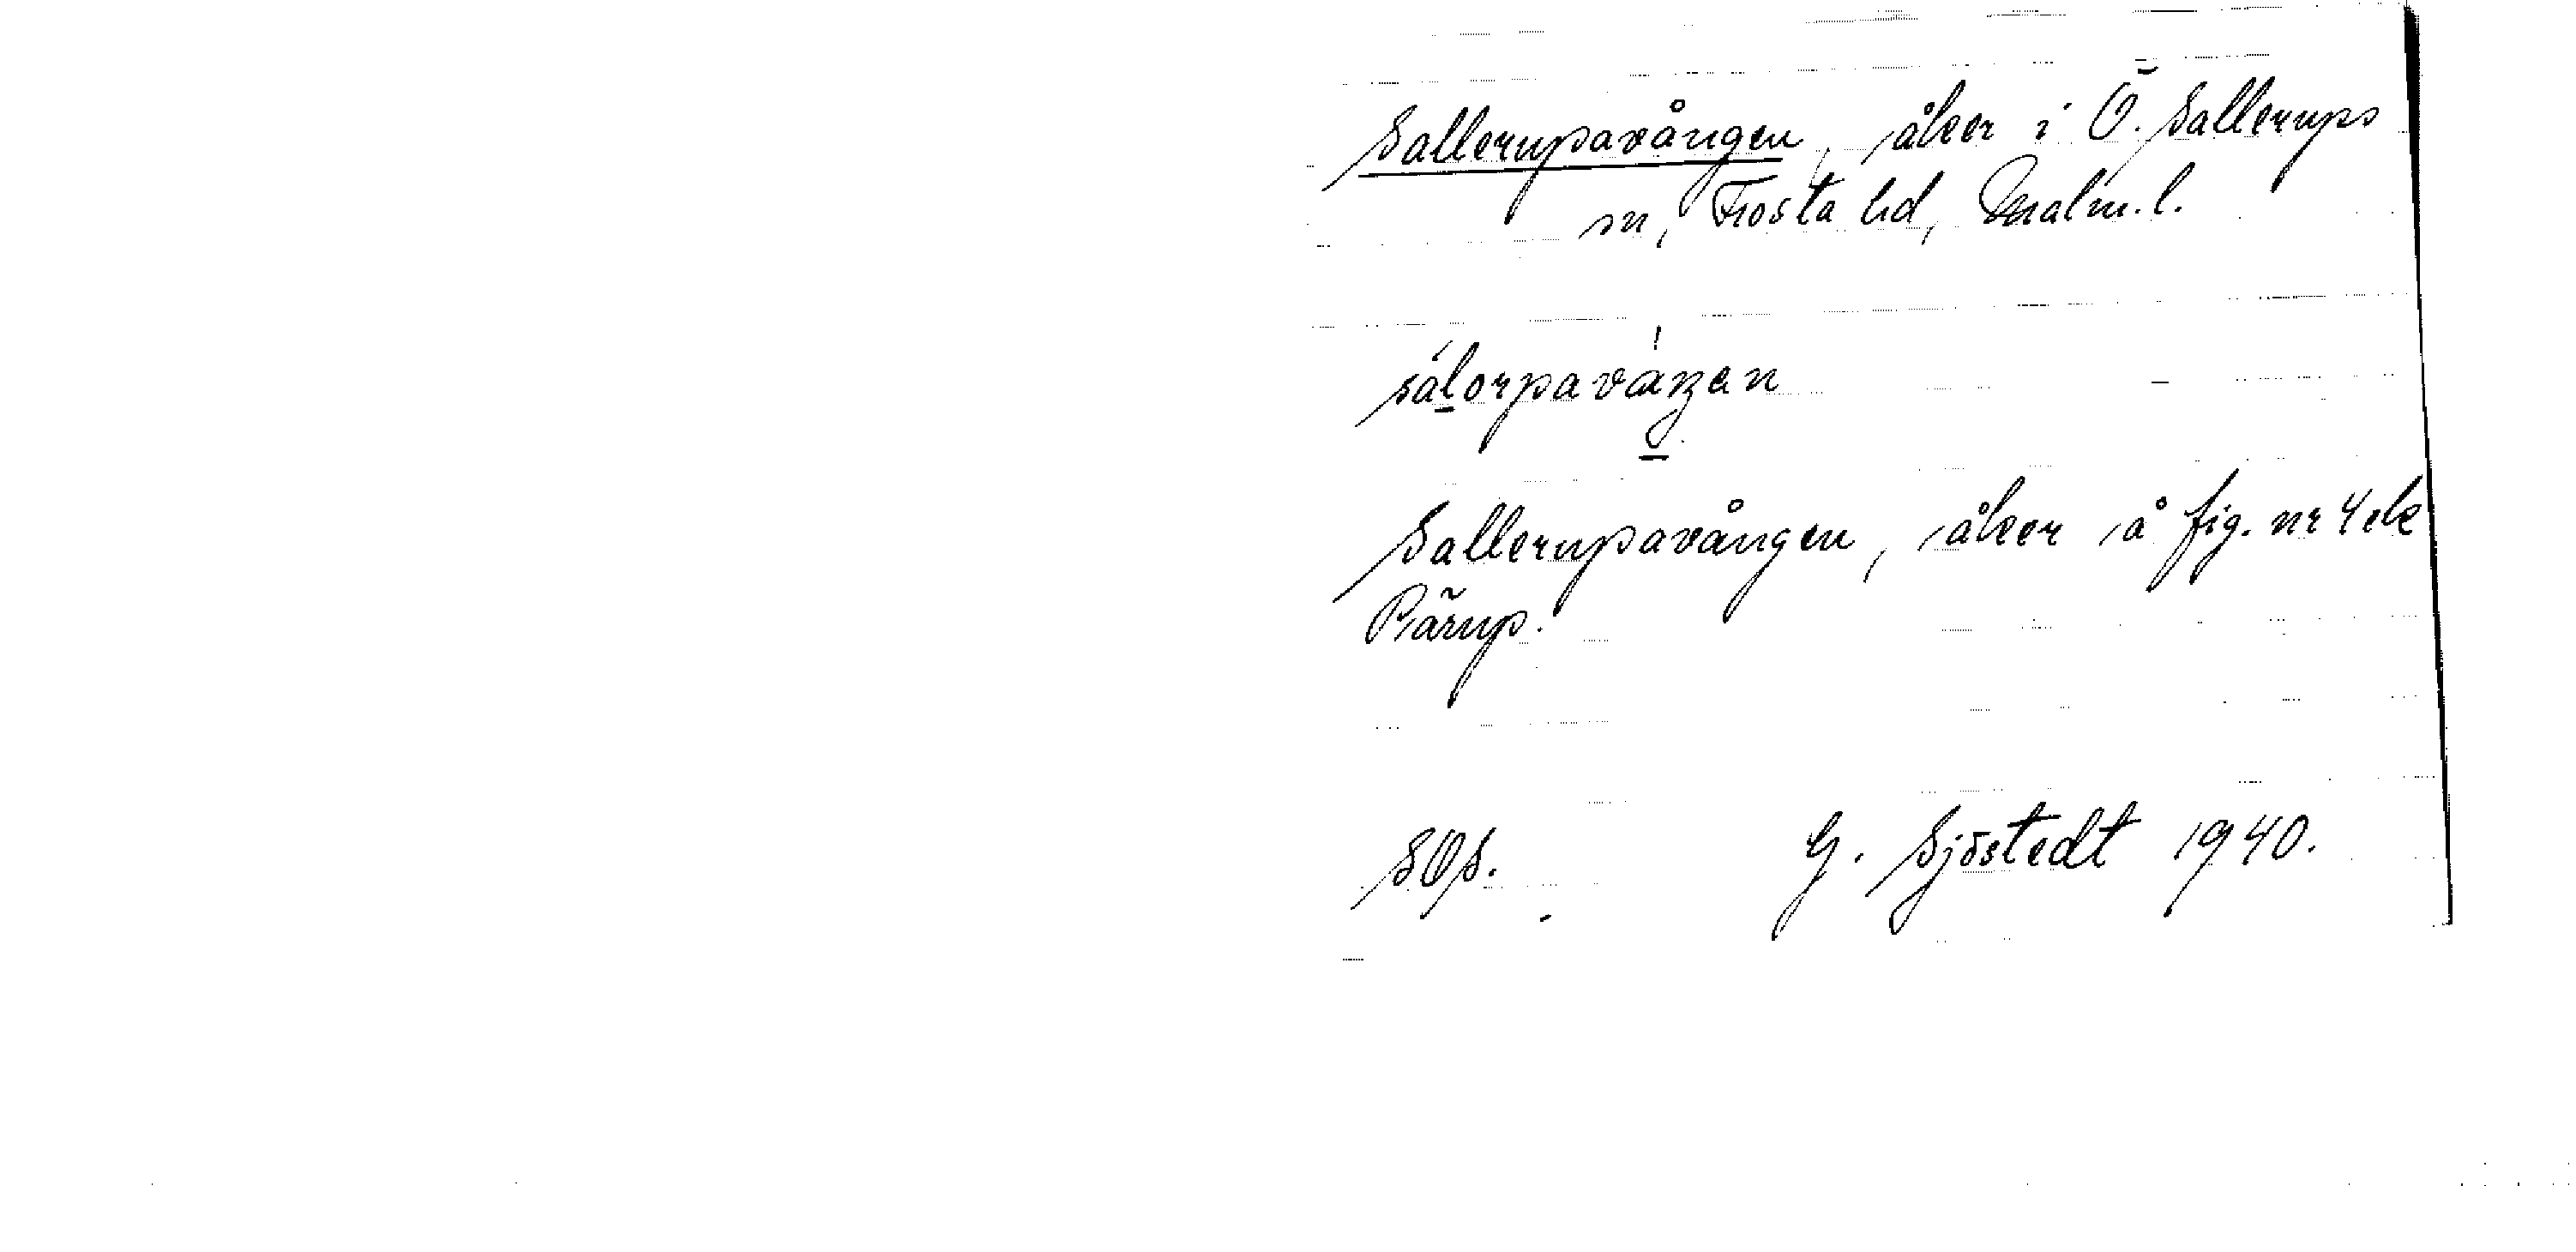 Sallerupavången, åker i Ö. Sallerups
sn, Frosta hd, Malm. l.
Sallerupavången, åker å fig. nr 4 ek
Pärup.
SOS. G. Sjöstedt 1940.